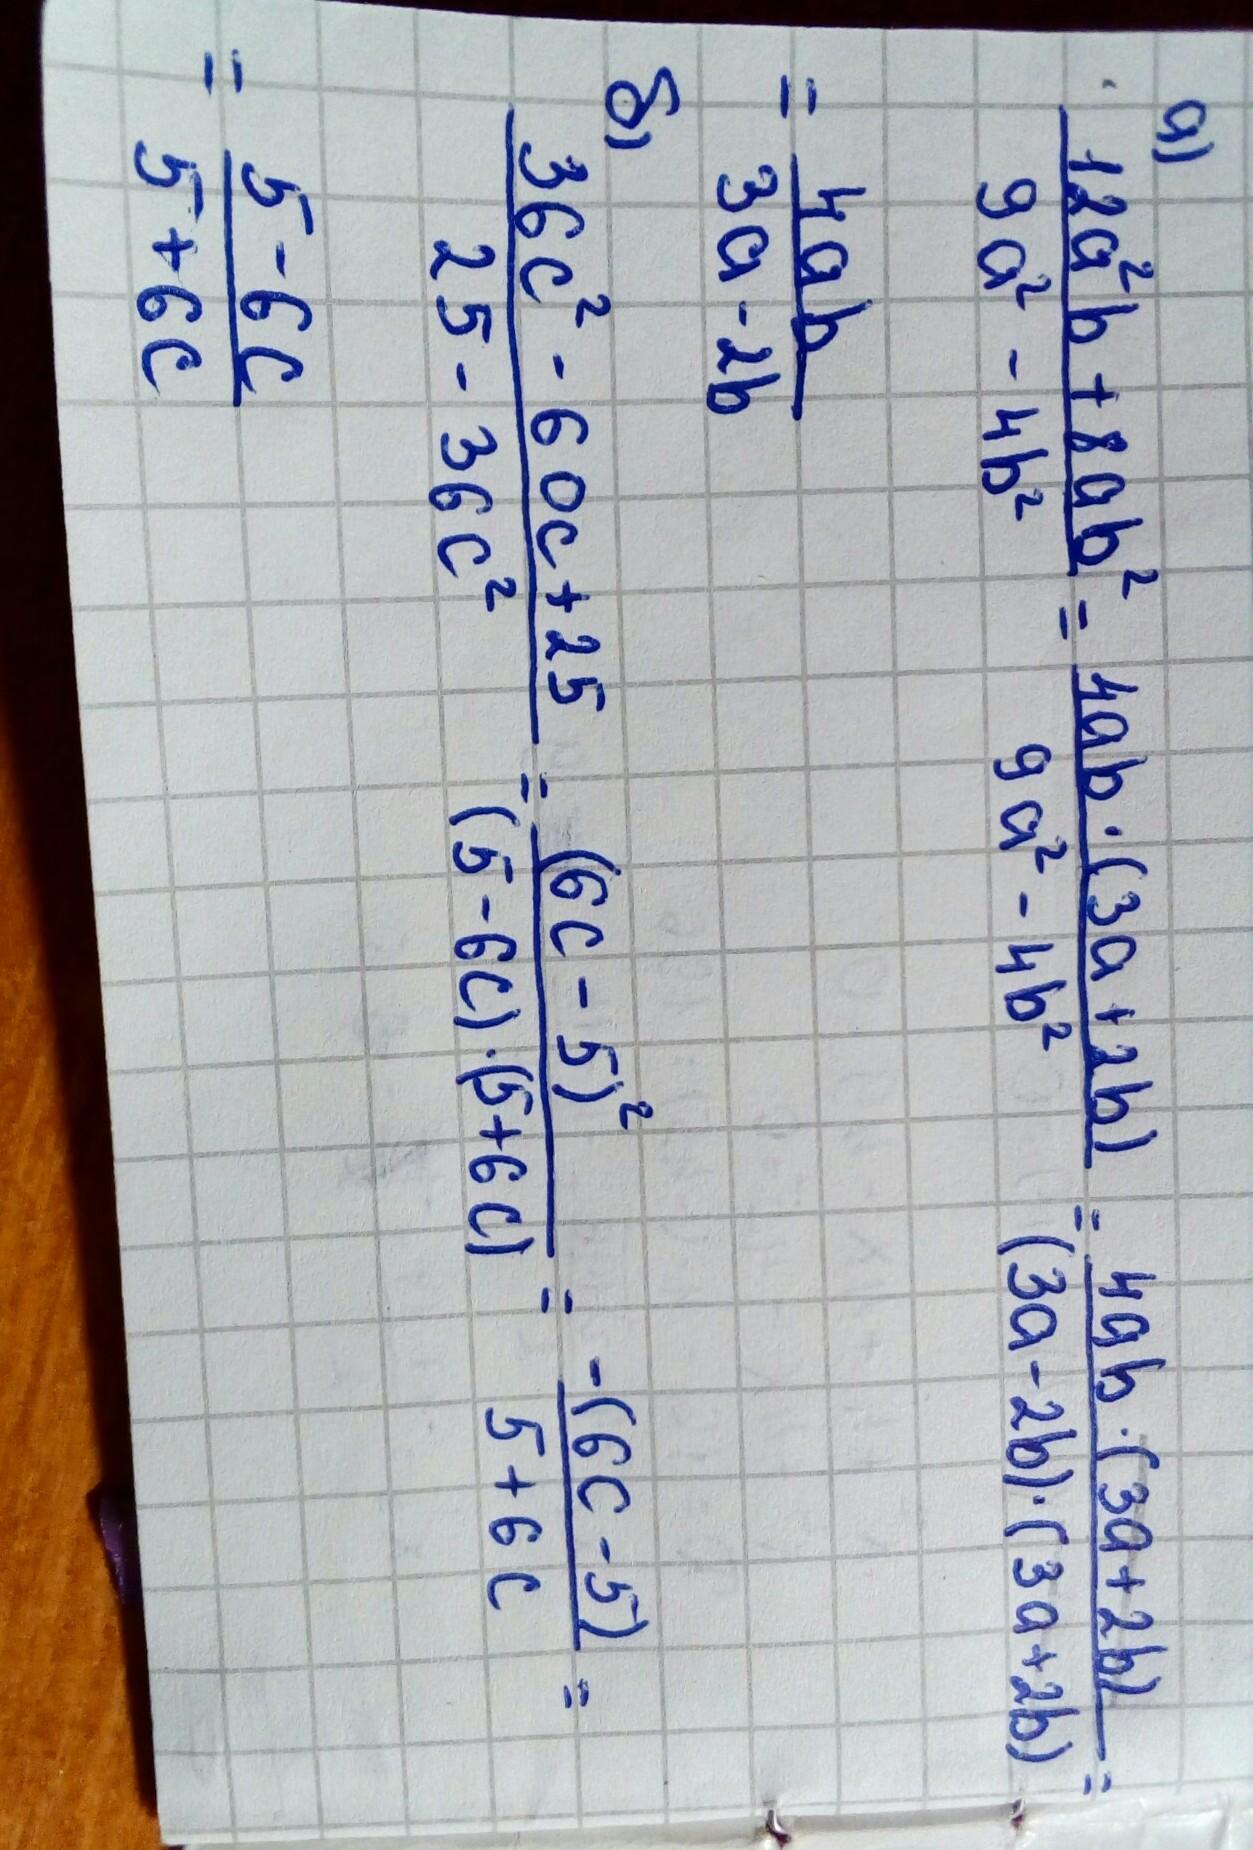 а)
12a²b + 8ab² / 9a² - 4b² = 4ab·(3a+2b) / 9a² - 4b² = 4ab·(3a+2b) / (3a-2b)·(3a+2b) =
= 4ab / 3a-2b
б)
36c² - 60c + 25 / 25 - 36c² = (6c-5)² / (5-6c)·(5+6c) = -(6c-5) / 5+6c =
= 5-6c / 5+6c